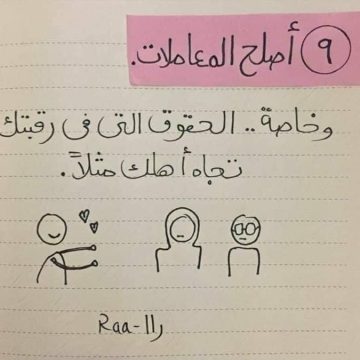 ٩ أصلح المعاملات.
وخاصة.. الحقوق التى فى رقبتك
تجاه أهلك مثلاً.
Raa-را